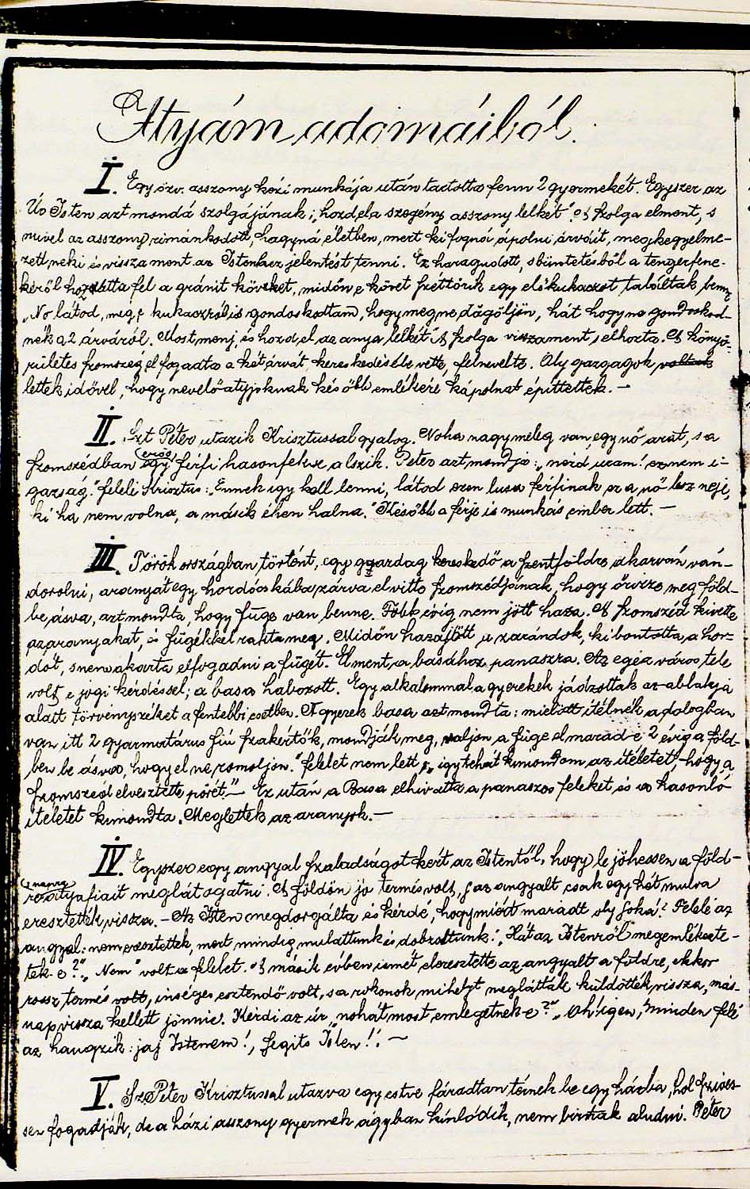 Atyám adomáiból.
I. Egy özv. asszony kézi munkája után tartotta fenn 2 gyermekét. Egyszer az
Úr Isten azt mondá szolgájának: „hozd el a szegény asszony lelkét". A szolga elment, s
mivel az asszony rimánkodott, hagyná életben, mert ki fogná ápolni árváit, megkegyelme-
zett neki és vissza ment az Istenhez jelentést tenni. Ez haragudott, s büntetésből a tengerfene-
kéről hozatta fel a gránit követ, midőn e követ széttörik egy élő kukaczot találtak benn
„No látod, még e kukaczról is gondoskodtam, hogy meg ne dögöljön, hát hogy ne gondoskod-
nék a 2 árváról. Most menj, és hozd, el az anya lelkét". A szolga visszament, s elhozta. A könyö-
rületes szomszéd elfogadta a két árvát, kereskedésébe vette, felnevelte. Oly gazdagok voltak
lettek idővel, hogy nevelő atyjoknak később emlékére kápolnát építtettek. —
II. Szt Péter utazik Krisztussal gyalog. Noha nagy meleg van egy nő arat, s a
szomszédban egy erős férfi hason fekve alszik. Péter azt mondja: „nézd uram! ez nem i-
gazság." feleli Krisztus: Ennek így kell lenni, látod ezen lusta férfinak ez a nő lesz neje,
ki ha nem volna, a másik éhen halna." Később a férje is munkás ember lett. —
III. Törökországban történt, egy gazdag kereskedő a szentföldre akarván ván-
dorolni, aranyait egy hordócskába zárva elvitte szomszédjának, hogy őrizze meg föld-
be ásva, azt mondta, hogy füge van benne. Több évig nem jött haza. A szomszéd kivette
az aranyakat, és fügékkel rakta meg. Midőn hazajött a zarándok, kibontotta a hor-
dót, s nem akarta elfogadni a fügét. Elment a basához panaszra. Az egész város tele
volt e jogi kérdéssel; a basa habozott. Egy alkalommal a gyerekek játszottak az ablakja
alatt törvényszéket a fentebbi esetben. A gyerek basa azt mondta: mielőtt ítélnék a dologban
van itt 2 gyarmatárus fiú szakértők, mondják meg, valjon a füge elmarad-e 2 évig a föld-
ben be ásva, hogy el ne romoljon." felelet nem lett „így tehát kimondom az ítéletet, hogy a
szomszéd elvesztette pörét." — Ez után a Basa elhivatta a panaszos feleket, és a hasonló
ítéletet kimondta. Meglettek az aranyok. —
IV. Egyszer egy angyal szabadságot kért az Istentől, hogy le jöhessen a föld-
re atyafiait meglátogatni. A földön jó termés volt, s az angyalt csak egy hét mulva
eresztették vissza. — Az Isten megdorgálta és kérdé, hogy miért maradt oly soká? Felelé az
angyal: nem eresztettek, mert mindig mulattunk és dobzoltunk. „Hát az Istenről megemlékezte-
tek-e?" „Nem" volt a felelet. A másik évben ismét eleresztette az angyalt a földre, ekkor
rossz termés volt, ínséges esztendő volt, s a rokonok mihelyt meglátták küldötték vissza, más-
nap vissza kellett jönnie. Kérdi az úr, no hát most emlegetnek-e?" „Oh! igen, minden felé
az hangzik: jaj Istenem!, segíts Isten!". —
V. Sz. Péter Krisztussal utazva egy estve fáradtan térnek be egy házba, hol szíves-
sen fogadják, de a házi asszony gyermek ágyban kínlódik, nem birnak aludni. Péter